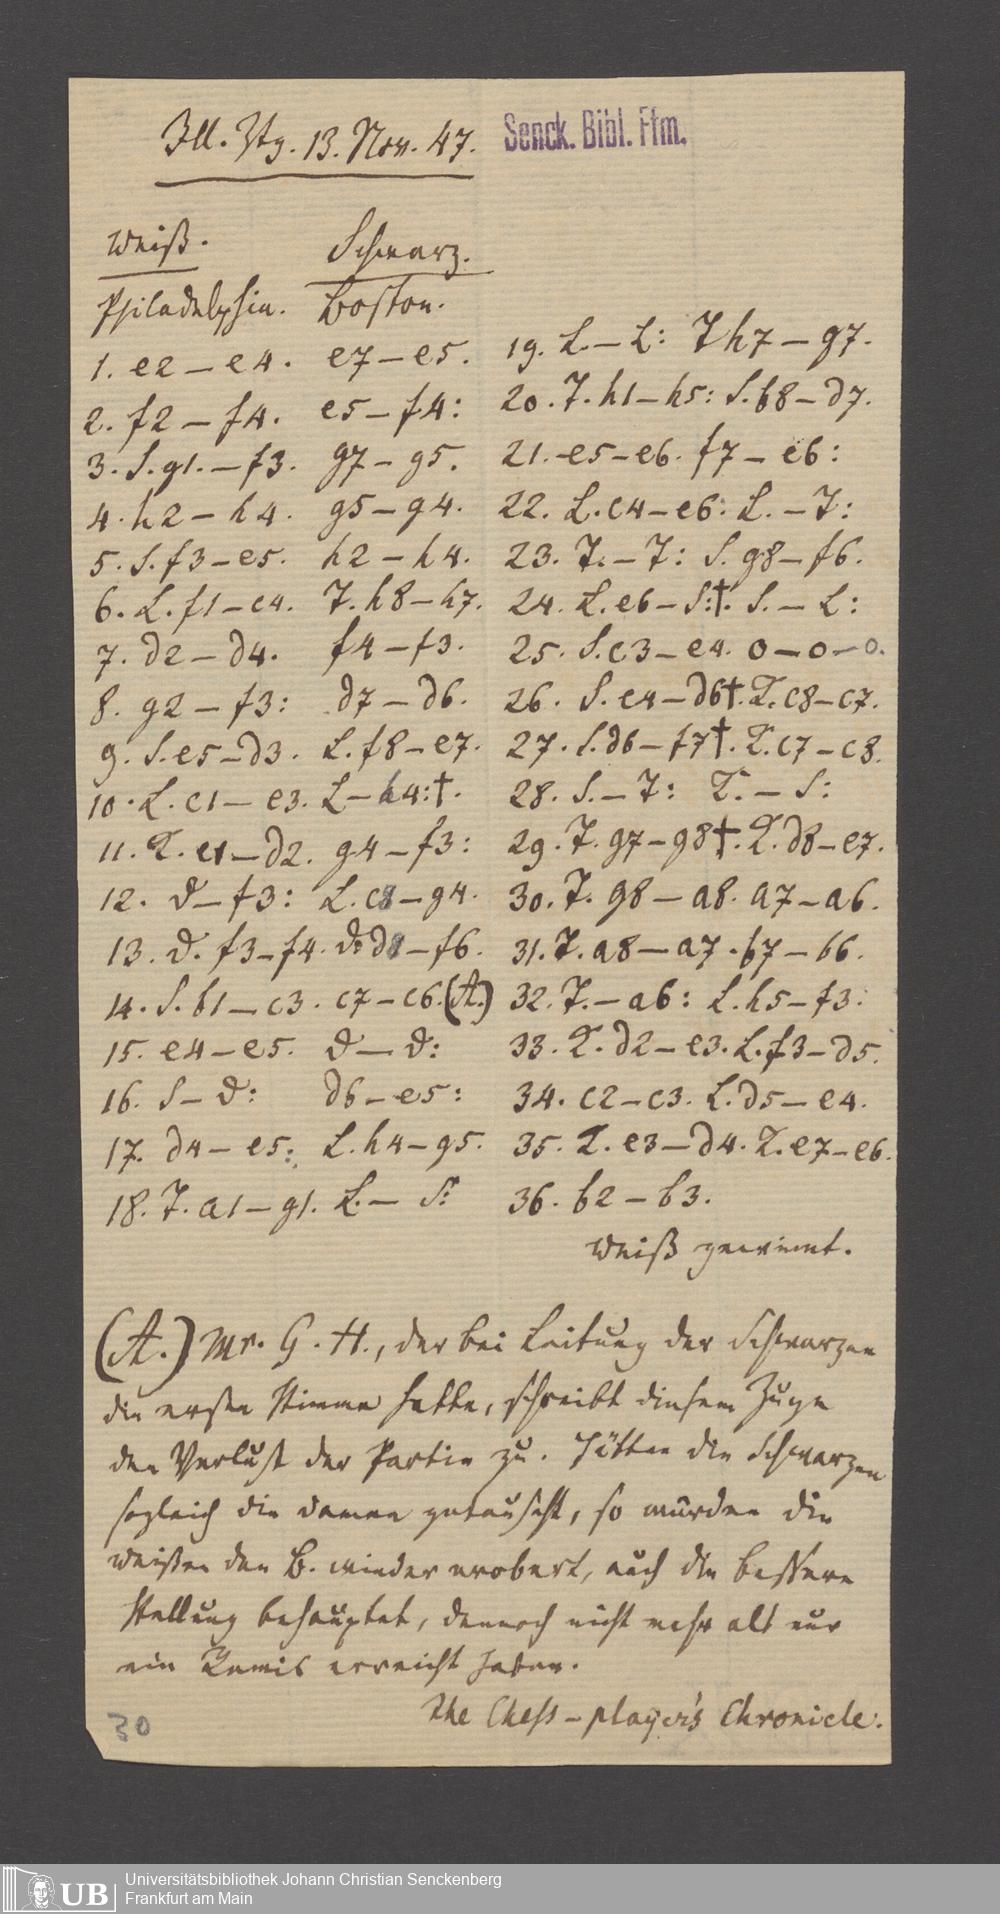 Ill. Ztg. 13. Nov. 47.
Senck. Bibl. Ffm.
Weiß. Schwarz.
Philadelphia. Boston.
1. e2 – e4. e7 – e5.
2. f2 – f4. e5 – f4:
3. S. g1. – f3. g7 – g5.
4. h2 – h4. g5 – g4.
5. S. f3 – e5. h2 – h4.
6. L. f1 – c4. T. h8 – h7.
7. d2 – d4. f4 – f3.
8. g2 – f3: d7 – d6.
9. S. e5 – d3. L. f8 – e7.
10. L. c1 – e3. L – h4:†.
11. K. e1 – d2. g4 – f3:
12. D – f3: L. c8 – g4.
13. D. f3 – f4. D. d8 – f6.
14. S. b1 – c3. c7 – c6. (A.)
15. e4 – e5. D – D:
16. S – D: d6 – e5:
17. d4 – e5: L. h4 – g5.
18. T. a1 – g1. L. – S:
19. L. – L: T h7 – g7.
20. T. h1 – h5: S. b8 – d7.
21. e5 – e6. f7 – e6:
22. L. c4 – e6: L. – T:
23. T. – T: S. g8 – f6.
24. L. e6 – S:†. S. – L:
25. S. c3 – e4. 0 – 0 – 0.
26. S. e4 – d6†. K. c8 – c7.
27. S. d6 – f7†. K. c7 – c8.
28. S. – T: K. – S:
29. T. g7 – g8†. K. d8 – e7.
30. T. g8 – a8. a7 – a6.
31. T. a8 – a7. b7 – b6.
32. T. – a6: L. h5 – f3:
33. K. d2 – e3. L. f3 – d5.
34. c2 – c3. L. d5 – e4.
35. K. e3 – d4. K. e7 – e6.
36. b2 – b3.
Weiß gewinnt.
(A.) Mr. G. H., der bei Leitung der Schwarzen
die erste Stimme hatte, schreibt diesem Zuge
den Verlust der Partie zu. Hätten die Schwarzen
sogleich die Damen getauscht, so würden die
Weißen den B. wieder erobert, auch die bessere
Stellung behauptet, dennoch nicht mehr als nur
ein Remis erreicht haben.
The Chess-player's Chronicle.
30
UB
Universitätsbibliothek Johann Christian Senckenberg
Frankfurt am Main